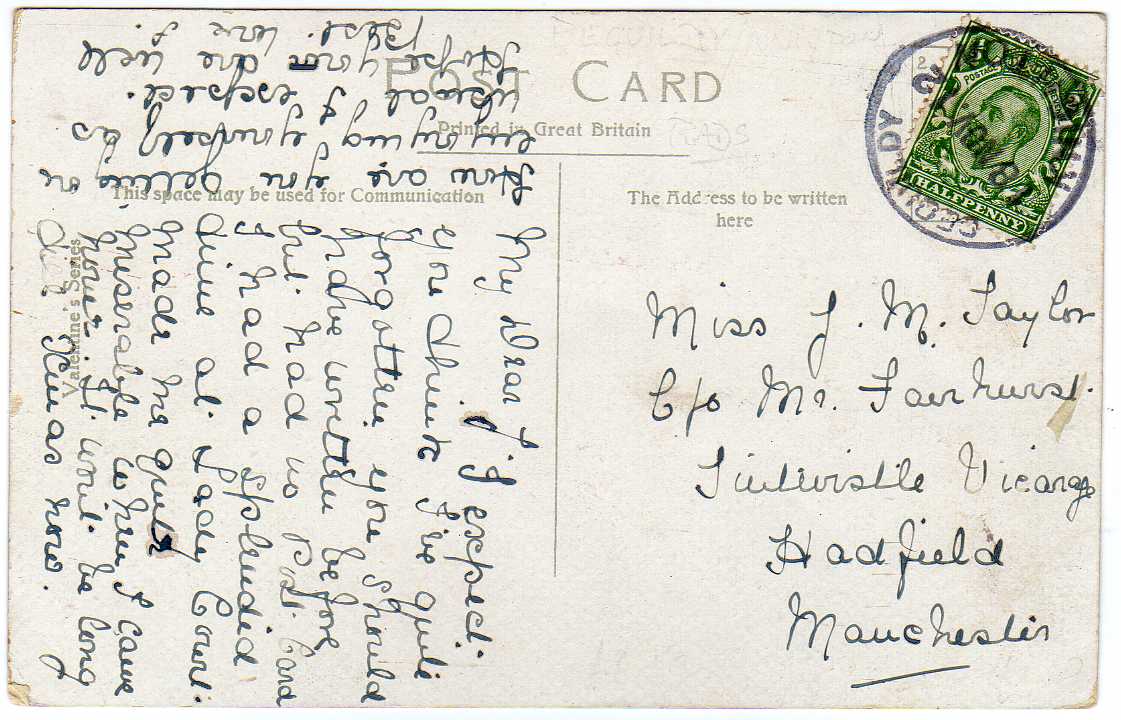 POST CARD
Printed in Great Britain
This space may be used for Communication
The Address to be written
here
Valentine's Series
POSTAGE
HALFPENNY
18 NOV
My Dear J. I expect
you think I've quite
forgotten you should
have written before
but had no Post Card
I had a splendid
time at Lady Court
made me quite
miserable when I came
home. It wont be long
till Xmas now.
How are you getting on
enjoying yourself as
usual I expect.
Hope you are well
Best love J.
Miss J. M. Taylor
C/o Mr. Fairhurst.
Tintwistle Vicarage
Hadfield
Manchester